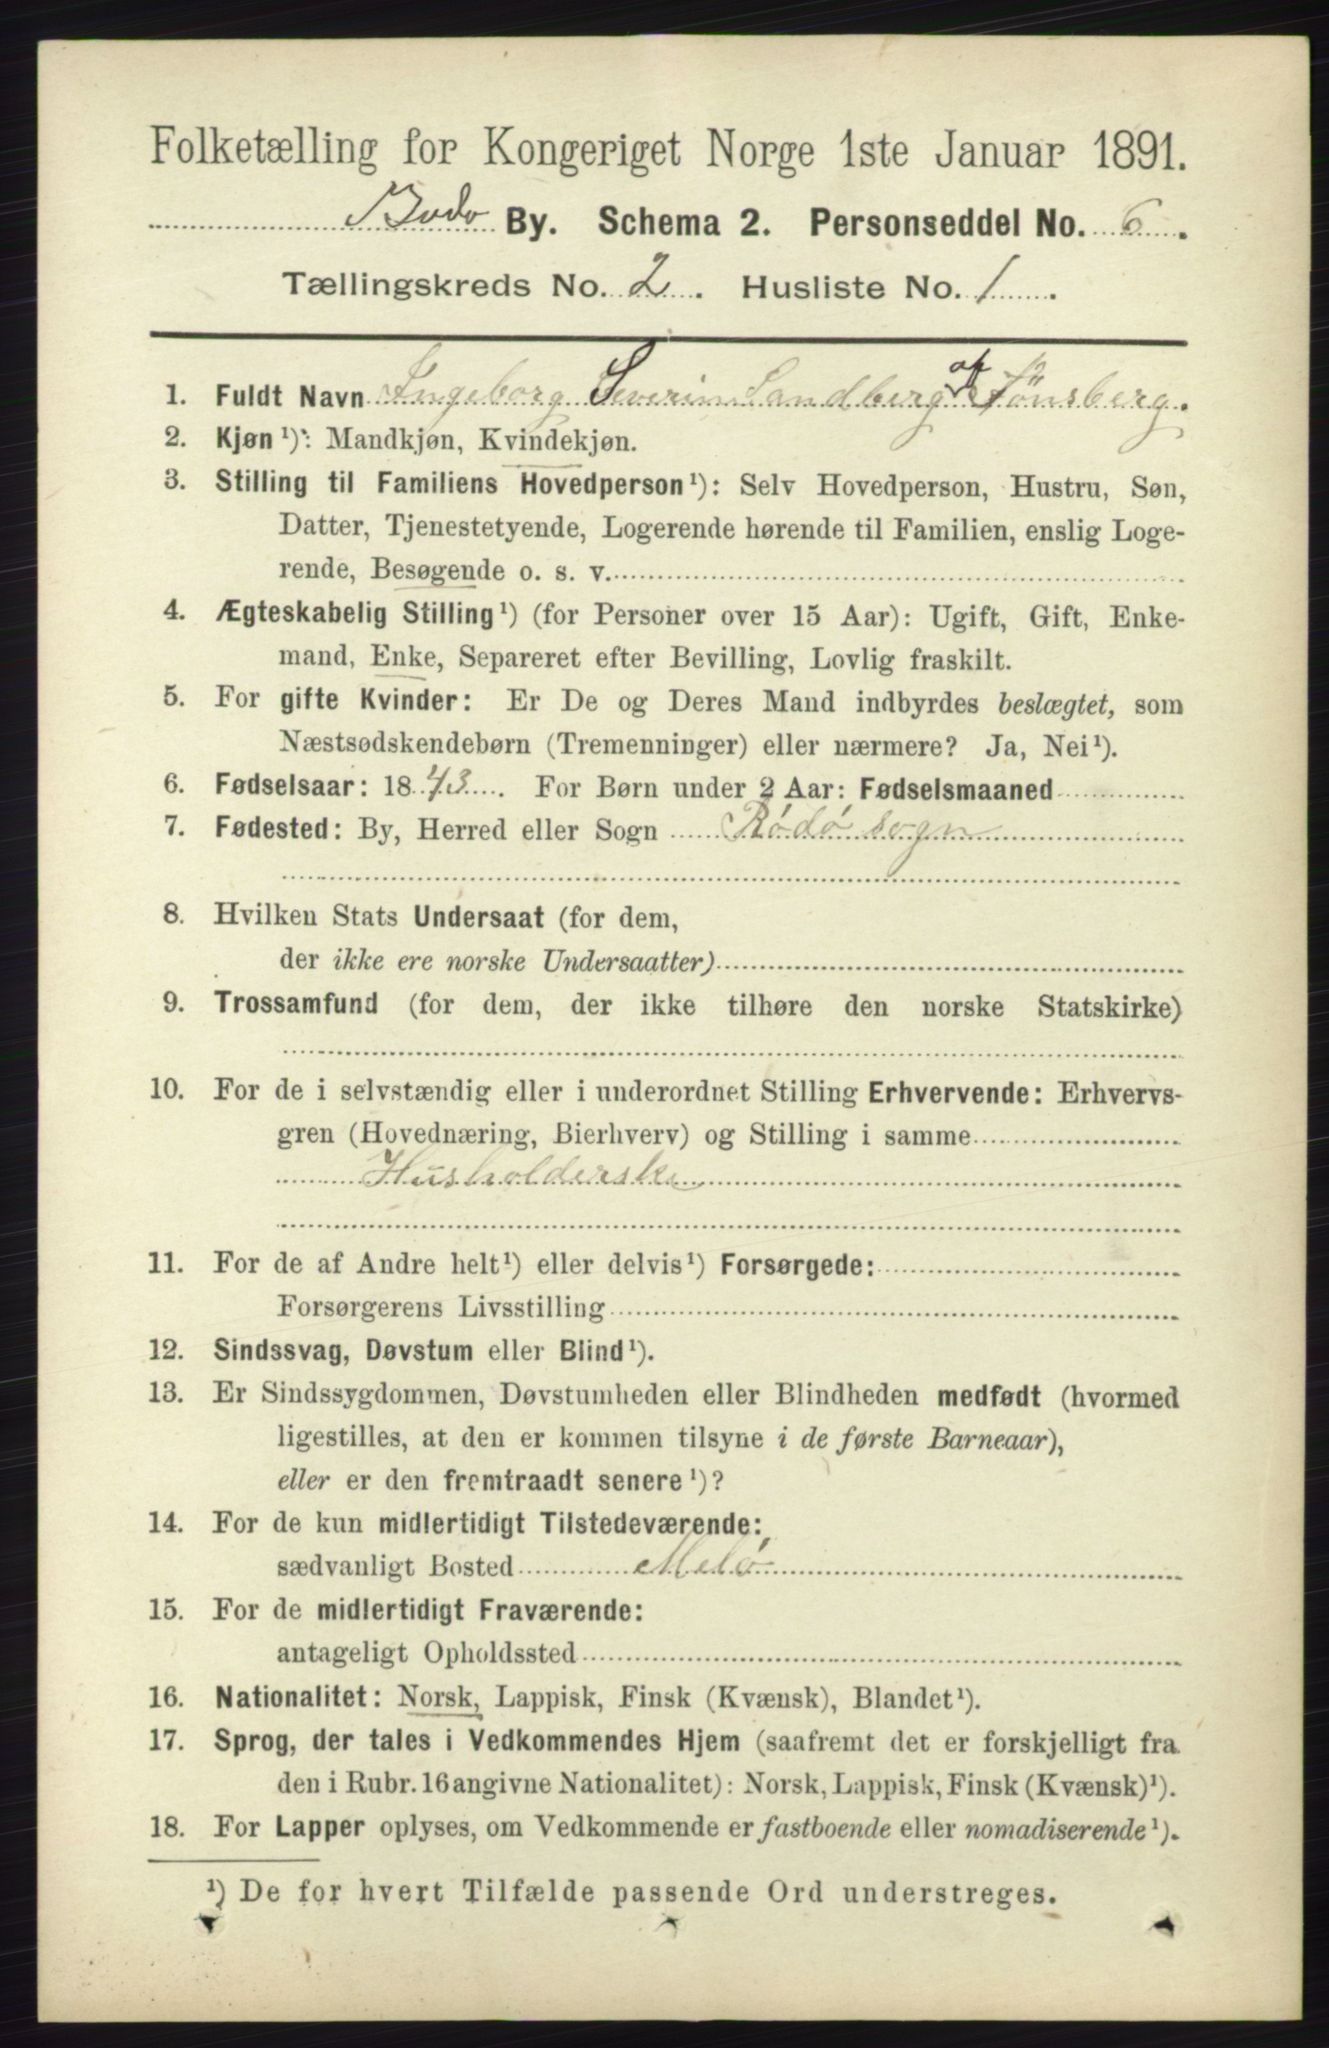 Folketælling for Kongeriget Norge 1ste Januar 1891.
Bodø By. Schema 2. Personseddel No. 6.
Tællingskreds No. 2. Husliste No. 1.
1. Fuldt Navn Ingeborg Severin Sandberg af Tönsberg.
2. Kjøn ¹): Mandkjøn, Kvindekjøn.
3. Stilling til Familiens Hovedperson ¹): Selv Hovedperson, Hustru, Søn,
Datter, Tjenestetyende, Logerende hørende til Familien, enslig Loge-
rende, Besøgende o. s. v.
4. Ægteskabelig Stilling ¹) (for Personer over 15 Aar): Ugift, Gift, Enke-
mand, Enke, Separeret efter Bevilling, Lovlig fraskilt.
5. For gifte Kvinder: Er De og Deres Mand indbyrdes beslægtet, som
Næstsødskendebørn (Tremenninger) eller nærmere? Ja, Nei ¹).
6. Fødselsaar: 1843. For Børn under 2 Aar: Fødselsmaaned
7. Fødested: By, Herred eller Sogn Rödö sogn
8. Hvilken Stats Undersaat (for dem,
der ikke ere norske Undersaatter)
9. Trossamfund (for dem, der ikke tilhøre den norske Statskirke)
10. For de i selvstændig eller i underordnet Stilling Erhvervende: Erhvervs-
gren (Hovednæring, Bierhverv) og Stilling i samme
Husholderske
11. For de af Andre helt ¹) eller delvis ¹) Forsørgede:
Forsørgerens Livsstilling
12. Sindssvag, Døvstum eller Blind ¹).
13. Er Sindssygdommen, Døvstumheden eller Blindheden medfødt (hvormed
ligestilles, at den er kommen tilsyne i de første Barneaar),
eller er den fremtraadt senere ¹)?
14. For de kun midlertidigt Tilstedeværende:
sædvanligt Bosted Melö
15. For de midlertidigt Fraværende:
antageligt Opholdssted
16. Nationalitet: Norsk, Lappisk, Finsk (Kvænsk), Blandet ¹).
17. Sprog, der tales i Vedkommendes Hjem (saafremt det er forskjelligt fra
den i Rubr. 16 angivne Nationalitet): Norsk, Lappisk, Finsk (Kvænsk) ¹).
18. For Lapper oplyses, om Vedkommende er fastboende eller nomadiserende ¹).
¹) De for hvert Tilfælde passende Ord understreges.